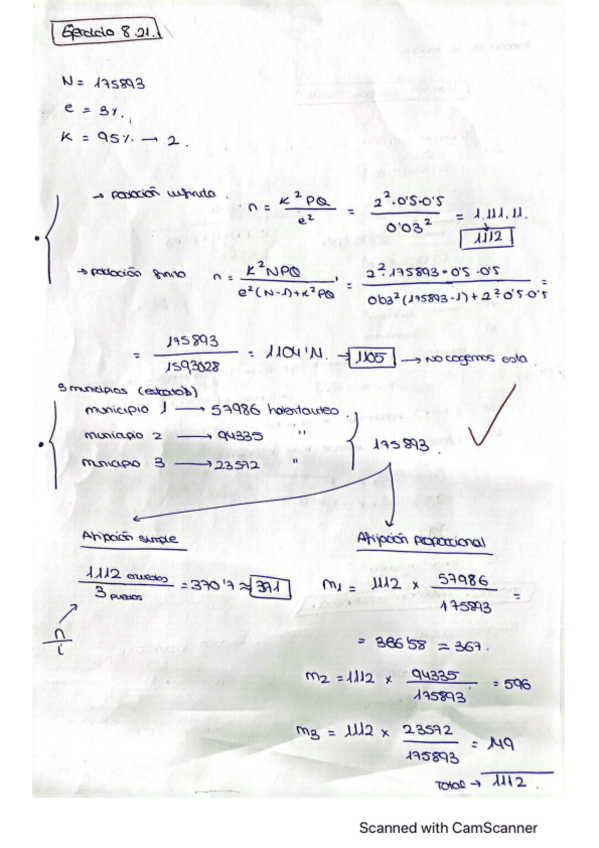 Ejercicio 8.21.
N = 175893
e = 3%.
K = 95% → 2.
→ población infinita. n = K²PQ / e² = 2²·0'5·0'5 / 0'03² = 1.111.11.
1112
→ población finita n = K²NPQ / e²(N-1)+K²PQ = 2²·175893·0'5·0'5 / 0'03²(175893-1)+2²·0'5·0'5 =
= 175893 / 159'3028 = 1104'11. → 1105 → No cogemos esta.
3 municipios (estratos)
municipio 1 → 57986 habitantes.
municipio 2 → 94335 "
municipio 3 → 23572 "
175893.
Afijación simple
Afijación proporcional
1112 encuestas / 3 pueblos = 370'7 ≈ 371
n / i
m1 = 1112 × 57986 / 175893 =
= 366'58 = 367.
m2 = 1112 × 94335 / 175893 = 596
m3 = 1112 × 23572 / 175893 = 149
Total → 1112.
Scanned with CamScanner